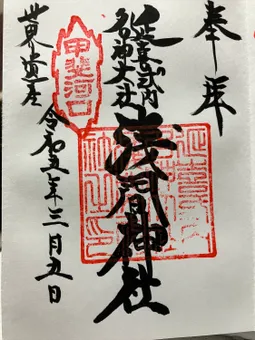 奉拝
延喜式内
名神大社
浅間神社
甲斐河口
世界遺産
令和五年三月五日